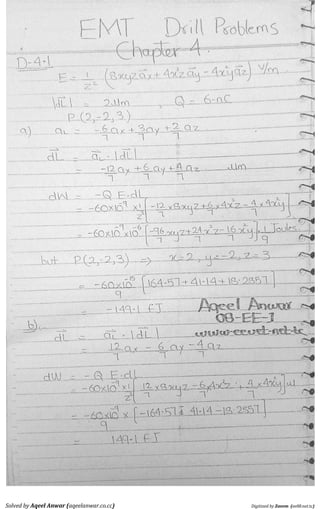 EMT Drill Problems
Chapter 4.
D-4.1
E = 1/z² (8xyz ax + 4x²z ay - 4x²y az) V/m
|dL| = 2 um , Q = 6 nC
P(2,-2,3)
a) aL = -6/7 ax + 3/7 ay + 2/7 az
dL = aL . |dL|
= -12/7 ax + 6/7 ay + 4/7 az um
dW = -Q E.dL
= -60x10⁻⁹ x 1/z² [-12/7 x 8xyz + 6/7 x 4x²z - 4/7 x 4x²y]
= -60x10⁻⁹ x10⁻⁶ [-96/7 xyz + 24/7 x²z - 16/7 x²y] 1/9 Joules.
but P(2,-2,3) => x=2, y=-2, z=3
= -60x10⁻¹⁵/9 [164.57 + 41.14 + 18.2857]
= -149.1 fJ
Aqeel Anwar
08-EE-1
b). dL = aL . |dL|
= 12/7 ax - 6/7 ay - 4/7 az
dW = -Q E.dL
= -60x10⁻⁹ x 1/z² [12/7 x 8xyz - 6/7 4x²z + 4/7 x 4x²y]
= -60x10⁻¹⁵/9 x [-164.57 - 41.14 - 18.2857]
= 149.1 fJ
Solved by Aqeel Anwar (aqeelanwar.co.cc)